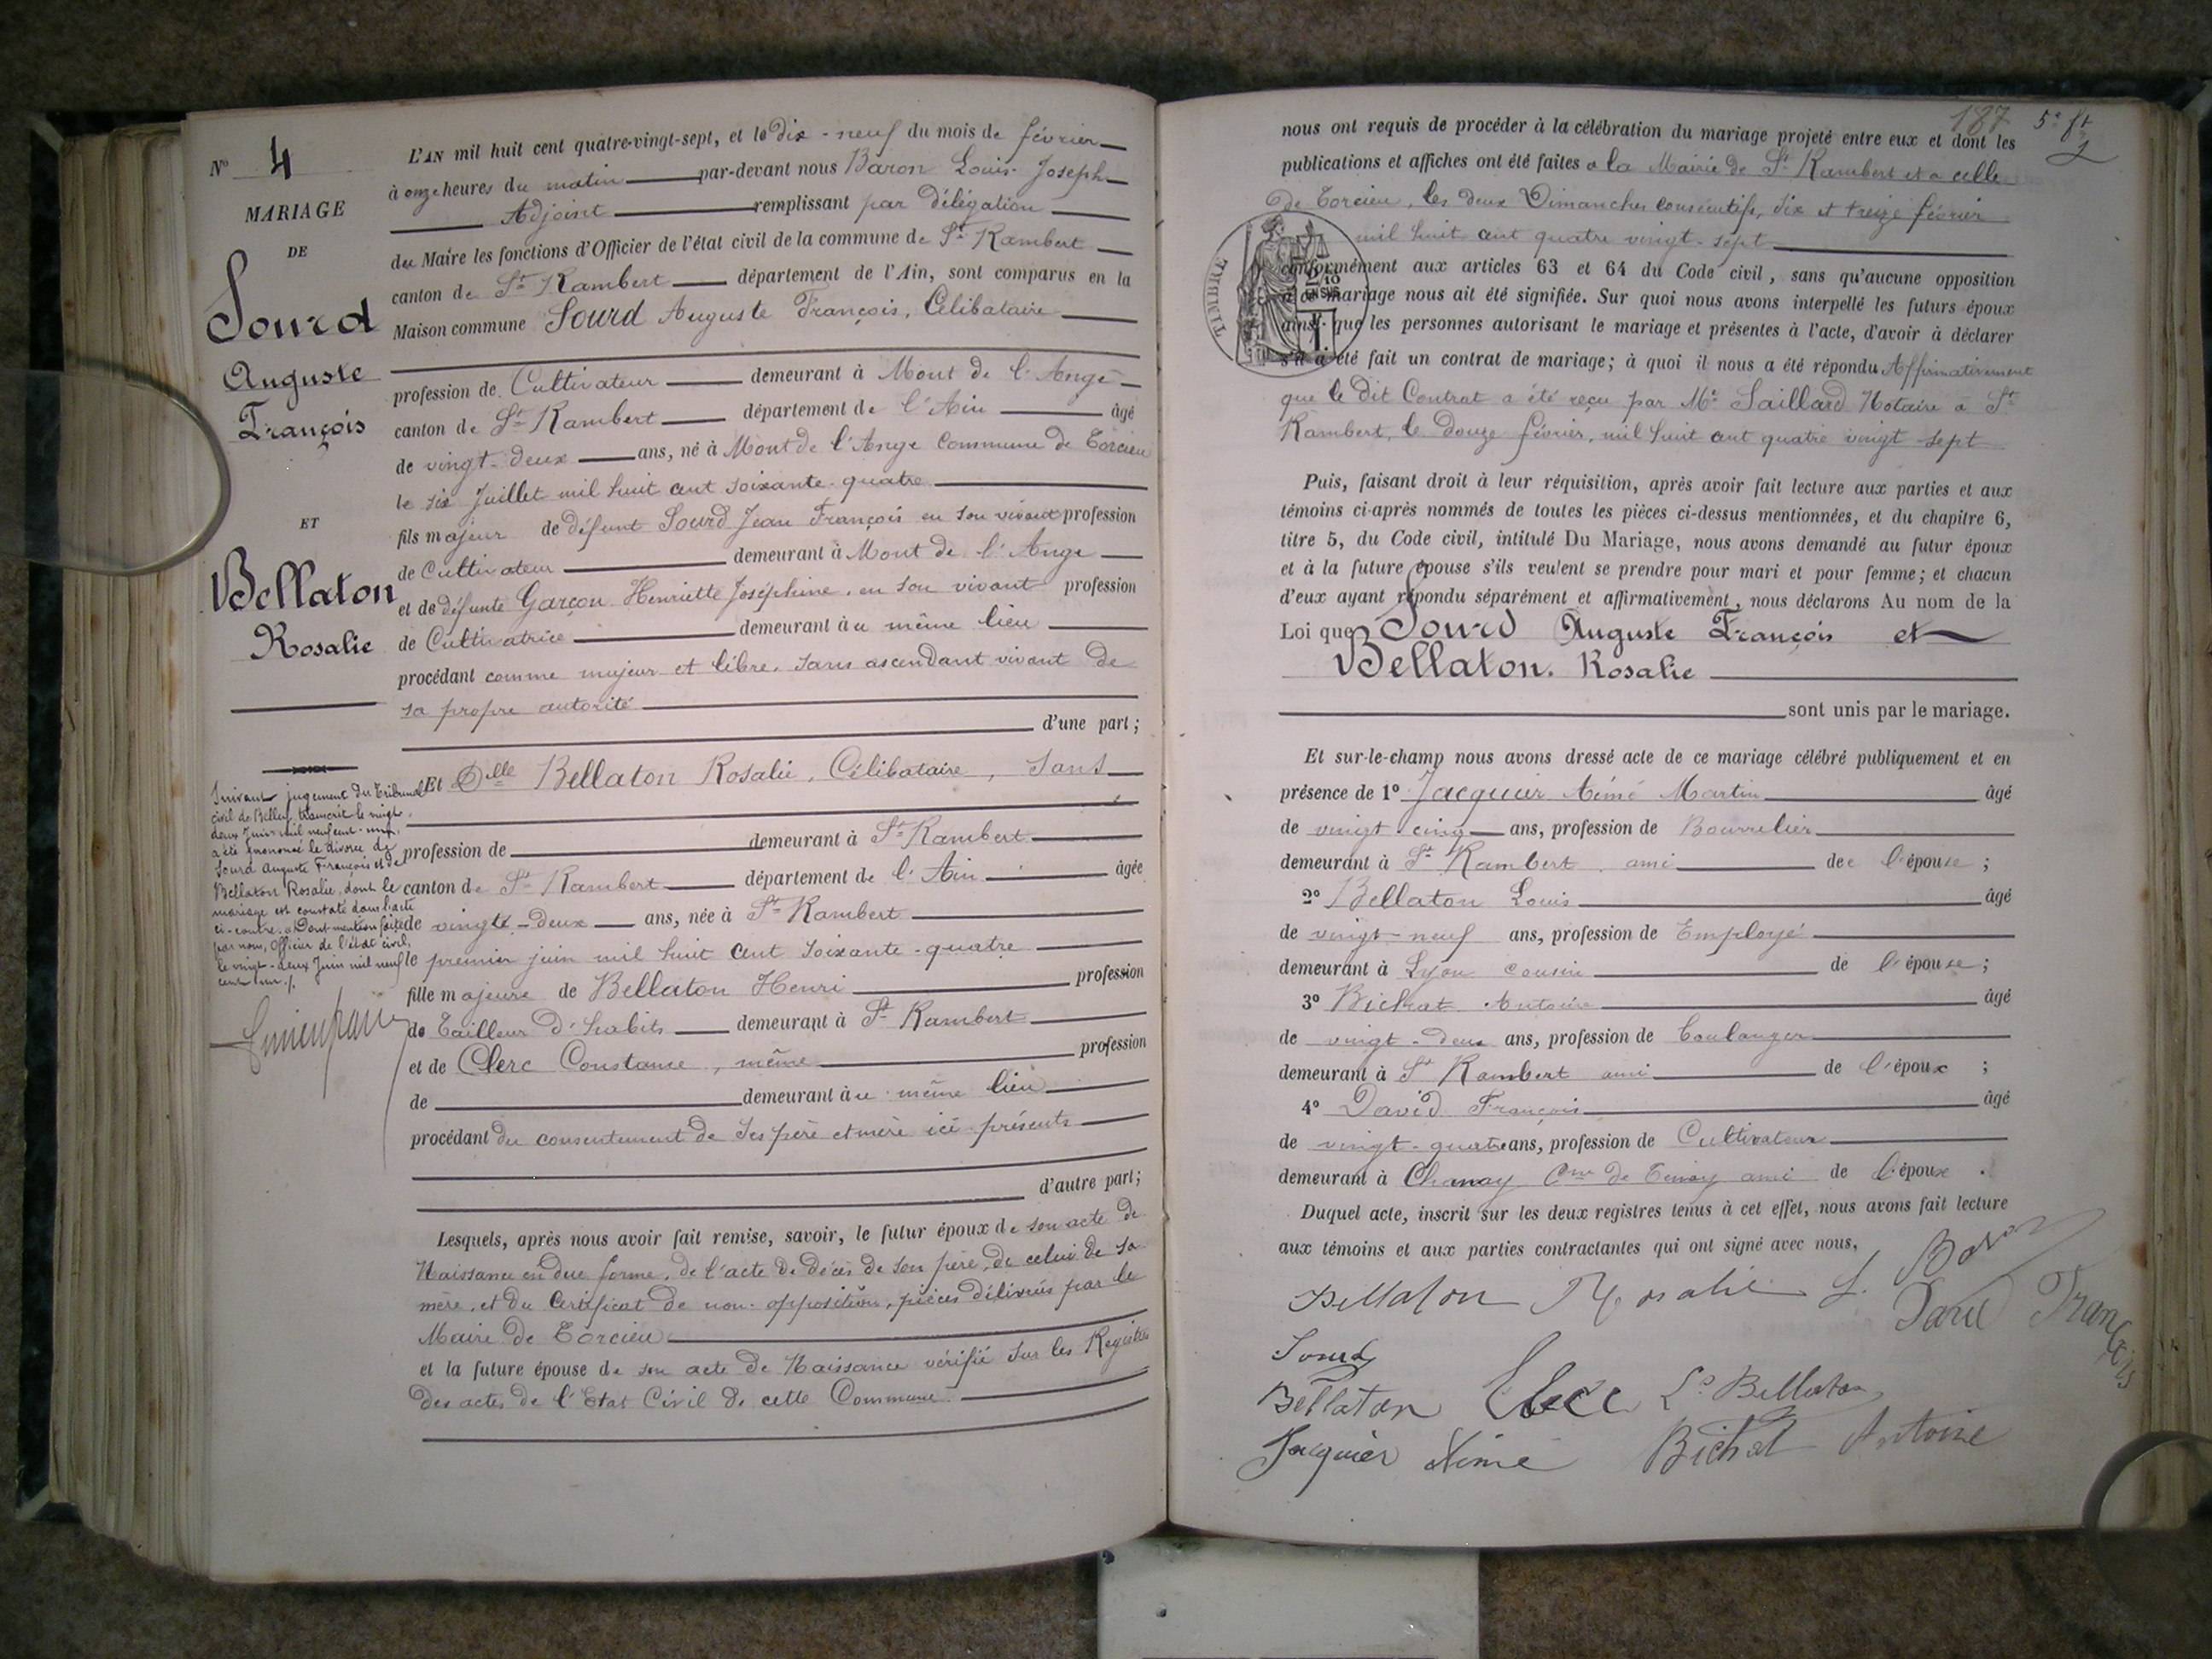 N° 4
MARIAGE
DE
Sourd
Auguste
François
ET
Bellaton
Rosalie
Suivant jugement du Tribunal
civil de Belley, transcrit le vingt
deux Juin mil neuf cent un,
a été prononcé le divorce de
Sourd Auguste François et de
Bellaton Rosalie, dont le
mariage est constaté dans l'acte
ci-contre. Dont mention faite
par nous, Officier de l'état civil,
le vingt-deux Juin mil neuf
cent un
L'AN mil huit cent quatre-vingt-sept, et le Dix-neuf du mois de février
à onze heures du matin par-devant nous Baron Louis Joseph
Adjoint remplissant par Délégation
du Maire les fonctions d'Officier de l'état civil de la commune de St Rambert
canton de St Rambert département de l'Ain, sont comparus en la
Maison commune Sourd Auguste François, Célibataire
profession de Cultivateur demeurant à Mont de l'Ange
canton de St Rambert département de l'Ain âgé
de vingt-deux ans, né à Mont de l'Ange Commune de Torcieu
le six Juillet mil huit cent soixante-quatre
fils majeur de défunt Sourd Jean François en son vivant profession
de Cultivateur demeurant à Mont de l'Ange
et de défunte Garçon Henriette Joséphine, en son vivant profession
de Cultivatrice demeurant au même lieu
procédant comme majeur et libre, sans ascendant vivant de
sa propre autorité
d'une part;
Et Dlle Bellaton Rosalie, Célibataire, Sans
profession de demeurant à St Rambert
canton de St Rambert département de l'Ain âgée
de vingt-deux ans, née à St Rambert
le premier juin mil huit cent soixante-quatre
fille majeure de Bellaton Henri profession
de Tailleur d'habits demeurant à St Rambert
et de Clerc Constance, même profession
de demeurant au même lieu
procédant du consentement de ses père et mère ici présents
d'autre part;
Lesquels, après nous avoir fait remise, savoir, le futur époux de son acte de
Naissance en due forme, de l'acte de décès de son père, de celui de sa
mère, et du Certificat de non-opposition, pièces délivrées par le
Maire de Torcieu
et la future épouse de son acte de Naissance vérifié sur les Registres
des actes de l'Etat Civil de cette Commune
187 5e ft
2
nous ont requis de procéder à la célébration du mariage projeté entre eux et dont les
publications et affiches ont été faites a la Mairie de St Rambert et a celle
de Torcieu, les deux Dimanches consécutifs, six et treize février
mil huit cent quatre vingt-sept
TIMBRE
2/10
EN SUS
conformément aux articles 63 et 64 du Code civil, sans qu'aucune opposition
à ce mariage nous ait été signifiée. Sur quoi nous avons interpellé les futurs époux
ainsi que les personnes autorisant le mariage et présentes à l'acte, d'avoir à déclarer
s'il a été fait un contrat de mariage; à quoi il nous a été répondu Affirmativement
que le dit Contrat a été reçu par Me Saillard Notaire à St
Rambert, le Douze février, mil huit cent quatre vingt-sept
Puis, faisant droit à leur réquisition, après avoir fait lecture aux parties et aux
témoins ci-après nommés de toutes les pièces ci-dessus mentionnées, et du chapitre 6,
titre 5, du Code civil, intitulé Du Mariage, nous avons demandé au futur époux
et à la future épouse s'ils veulent se prendre pour mari et pour femme; et chacun
d'eux ayant répondu séparément et affirmativement, nous déclarons Au nom de la
Loi que Sourd Auguste François et
Bellaton. Rosalie
sont unis par le mariage.
Et sur-le-champ nous avons dressé acte de ce mariage célébré publiquement et en
présence de 1° Jacquier Aimé Martin âgé
de vingt cinq ans, profession de Bourrelier
demeurant à St Rambert ami de l'épouse;
2° Bellaton Louis âgé
de vingt-neuf ans, profession de Employé
demeurant à Lyon cousin de l'épouse;
3° Bichat Antoine âgé
de vingt-deux ans, profession de boulanger
demeurant à St Rambert ami de l'époux;
4° David François âgé
de vingt-quatre ans, profession de Cultivateur
demeurant à Chanay Cne de Tenay ami de l'époux.
Duquel acte, inscrit sur les deux registres tenus à cet effet, nous avons fait lecture
aux témoins et aux parties contractantes qui ont signé avec nous,
Bellaton Rosalie L. Baron
Sourd David François
Bellaton Clerc Ls Bellaton
Jacquier Aimé Bichat Antoine